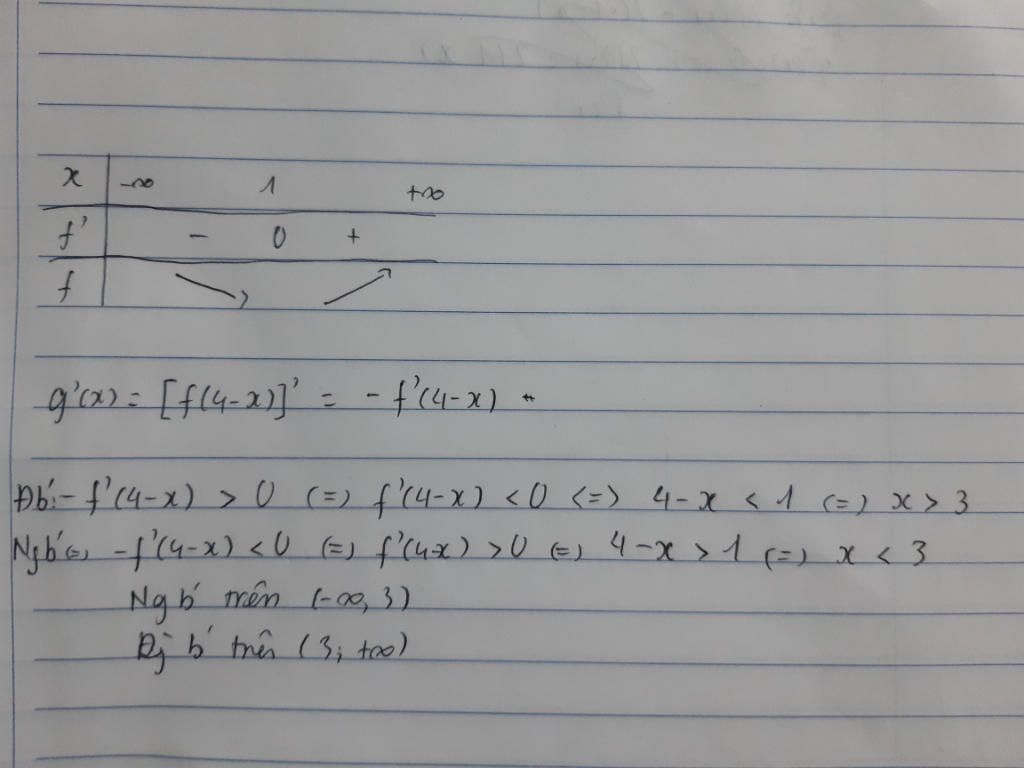 x -∞ 1 +∞
f' - 0 +
f
g'(x) = [f(4-x)]' = - f'(4-x)
Đb': - f'(4-x) > 0 (=) f'(4-x) < 0 <=> 4-x < 1 (=) x > 3
Ng b' (=) -f'(4-x) < 0 (=) f'(4-x) > 0 (=) 4-x > 1 (=) x < 3
Ng b' trên (-∞, 3)
Đ b' trên (3; +∞)